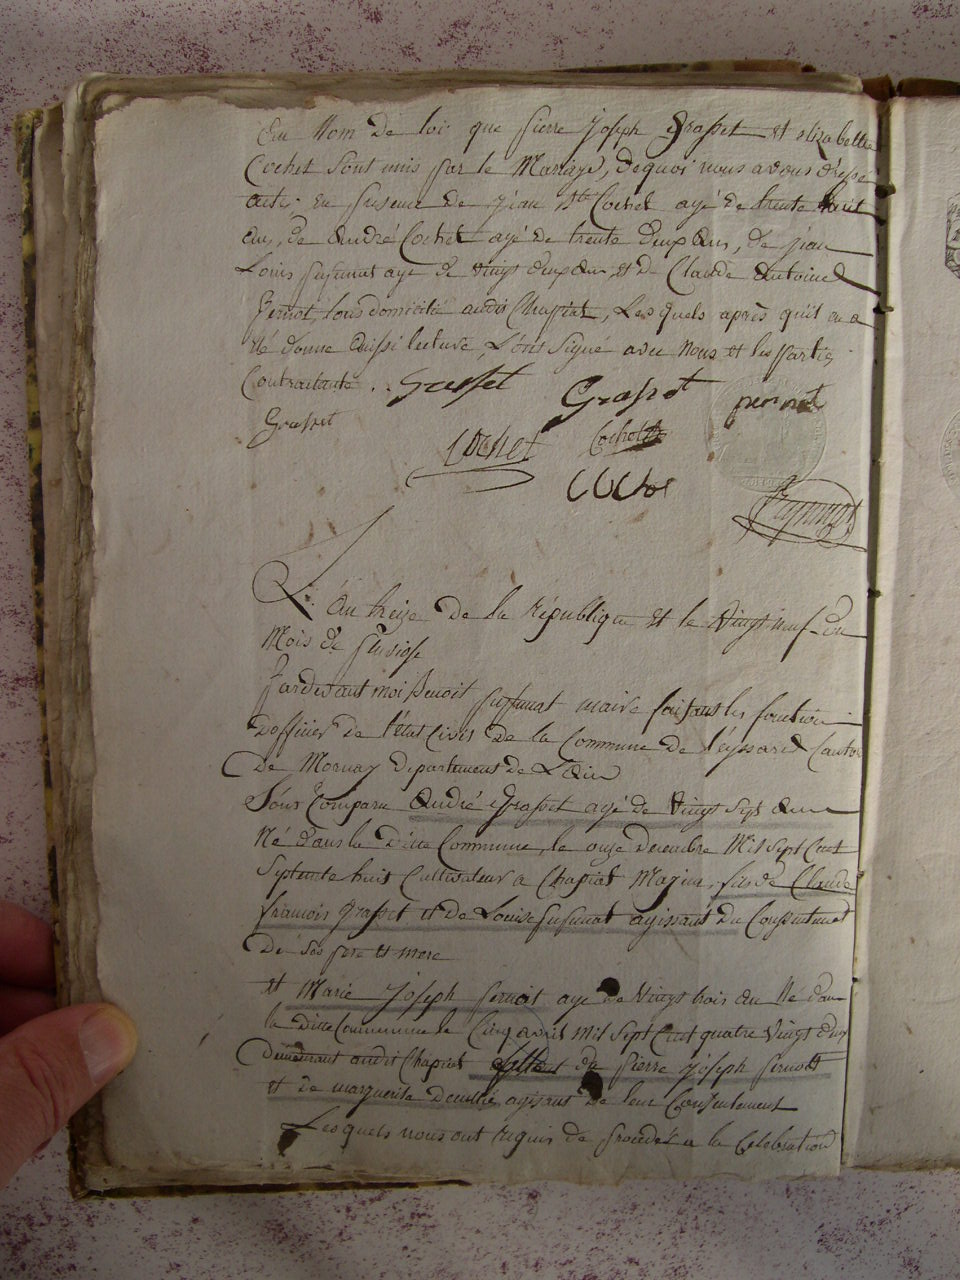 Au Nom de loi que pierre joseph Grasset et elizabette
Cochet sont unis par le Mariage, dequoi nous avons dressé
acte, en presence de jean Bte Cochet agé de trente huit
ans, de André Cochet agé de trente deux ans, de jean
Louis agé de vingt deux ans, et de Claude Antoine
pernot, tous domicilié audit Chapiat, Lesquels après qu'il en a
été donné aussi lecture, L'ont signé avec Nous et les parties
Contractante. Grasset Grasset pernot
Grasset
Cochet Cochet
Cochet
L'An treize de la République et le Vingt neuf du
Mois de pluviose
Pardevant moi Benoit maire faisant les fonction
D'officier de l'état Civil de la Commune de Canton
De Mornay departement de L'Ain
Sont Comparu André Grasset agé de Vingt sept ans
Né dans la ditte Commune, le onze Decembre Mil sept Cent
Septente huit Cultivateur a Chapiat Majeur, fils de Claude
francois Grasset et de Louise agissant du Consentement
De ses pere et mere
et Marie joseph agé de Vingt trois an Né dans
la ditte Commune le Cinq avril Mil sept Cent quatre Vingt deux
Demeurant audit Chapiat fille de pierre joseph
et de marguerite agissant De leur Consentement
Lesquels nous ont requis de procedé a la Celebration